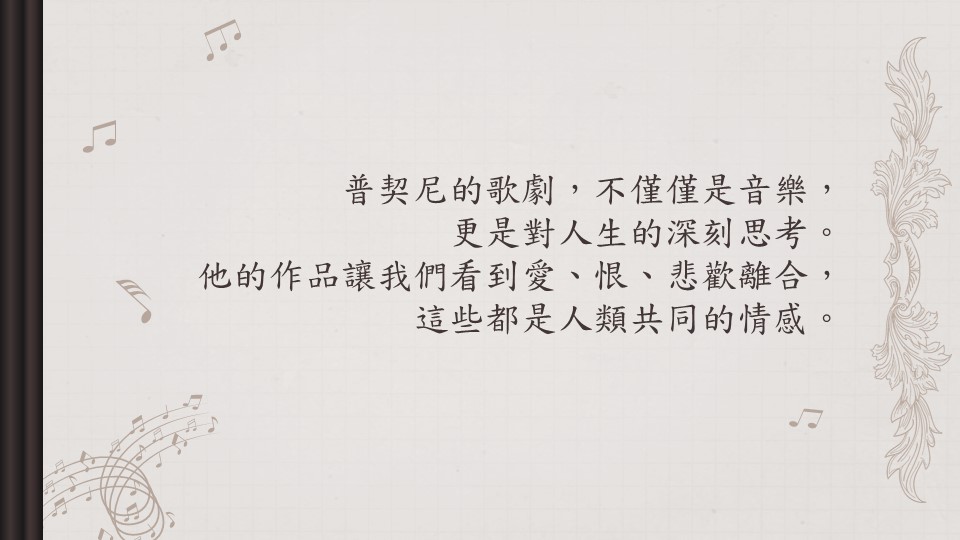 普契尼的歌劇，不僅僅是音樂，
更是對人生的深刻思考。
他的作品讓我們看到愛、恨、悲歡離合，
這些都是人類共同的情感。